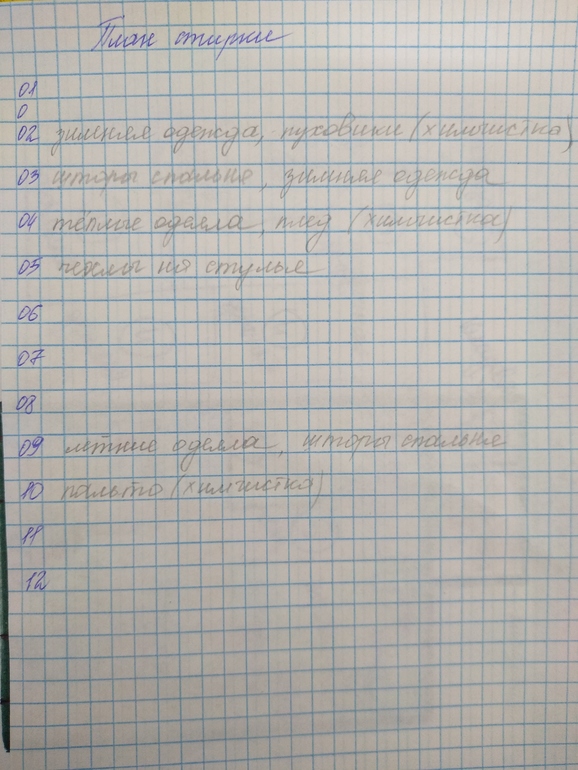 План стирки
01
0
02 зимняя одежда, пуховики (химчистка)
03 шторы спальня, зимняя одежда
04 тёплые одеяла, плед (химчистка)
05 чехлы на стулья
06
07
08
09 летние одеяла, шторы спальня
10 пальто (химчистка)
11
12